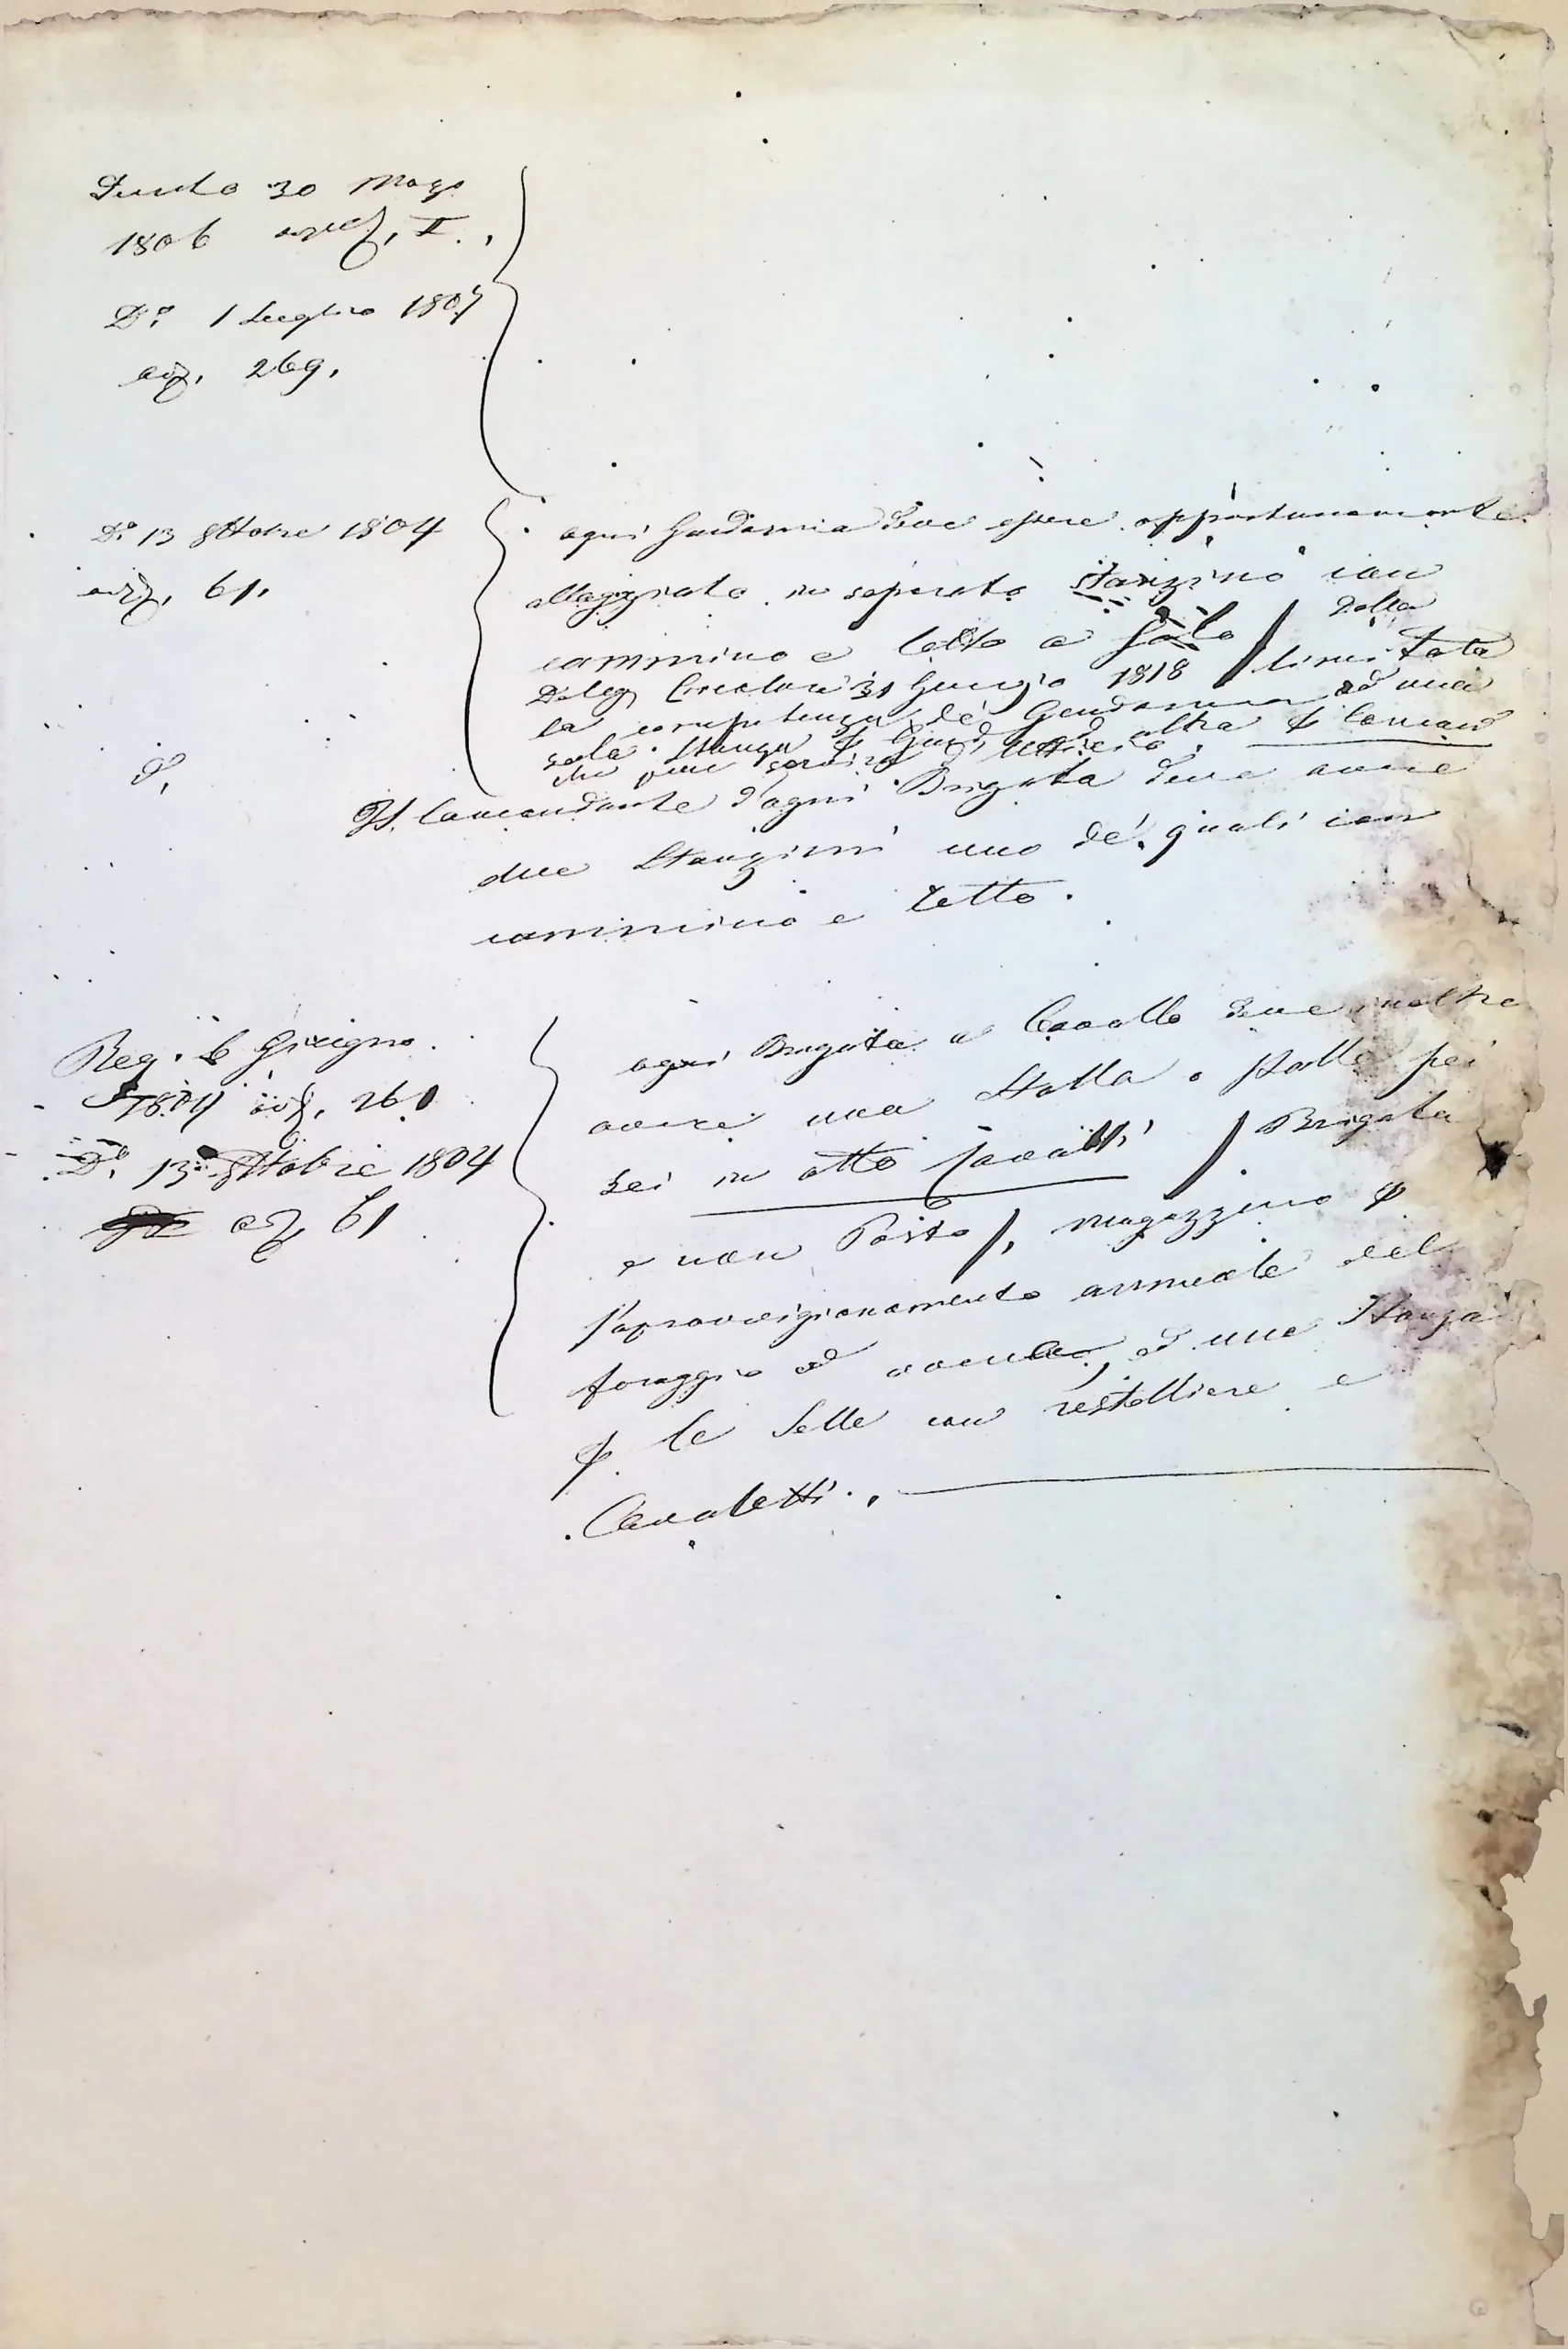 30 Mago
1806 II.,
D.º 1 Luglio 1807
269.
D.º 13 8ttobre 1804
61.
ogni Gendarmia deve essere opportunamente
alloggiato in separato stanzino con
cammino e letto a Solo / Dalla
Deleg Circolare 31 1818 limitata
la competenza de' Gendarmi ad una
sola Stanza ed altra
che può servire d'
D.
Il Comandante d'ogni Brigata deve avere
due Stanzini uno de' quali con
cammino e Letto.
Reg. 6 Giugno
1804 260
D.º 13 8ttobre 1804
61
ogni Brigata a Cavallo deve inoltre
avere una Stalla o Stalle pei
sei in otto Cavalli / Brigata
e non Posto /, magazzino p
l'aprovvigionamento annuale del
foraggio ed avena, ed una Stanza
p. le Selle con restelliere e
Cavaletti.,